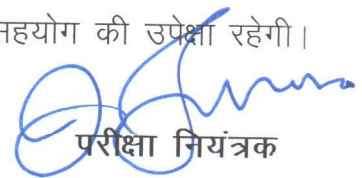 सहयोग की उपेक्षा रहेगी।
परीक्षा नियंत्रक